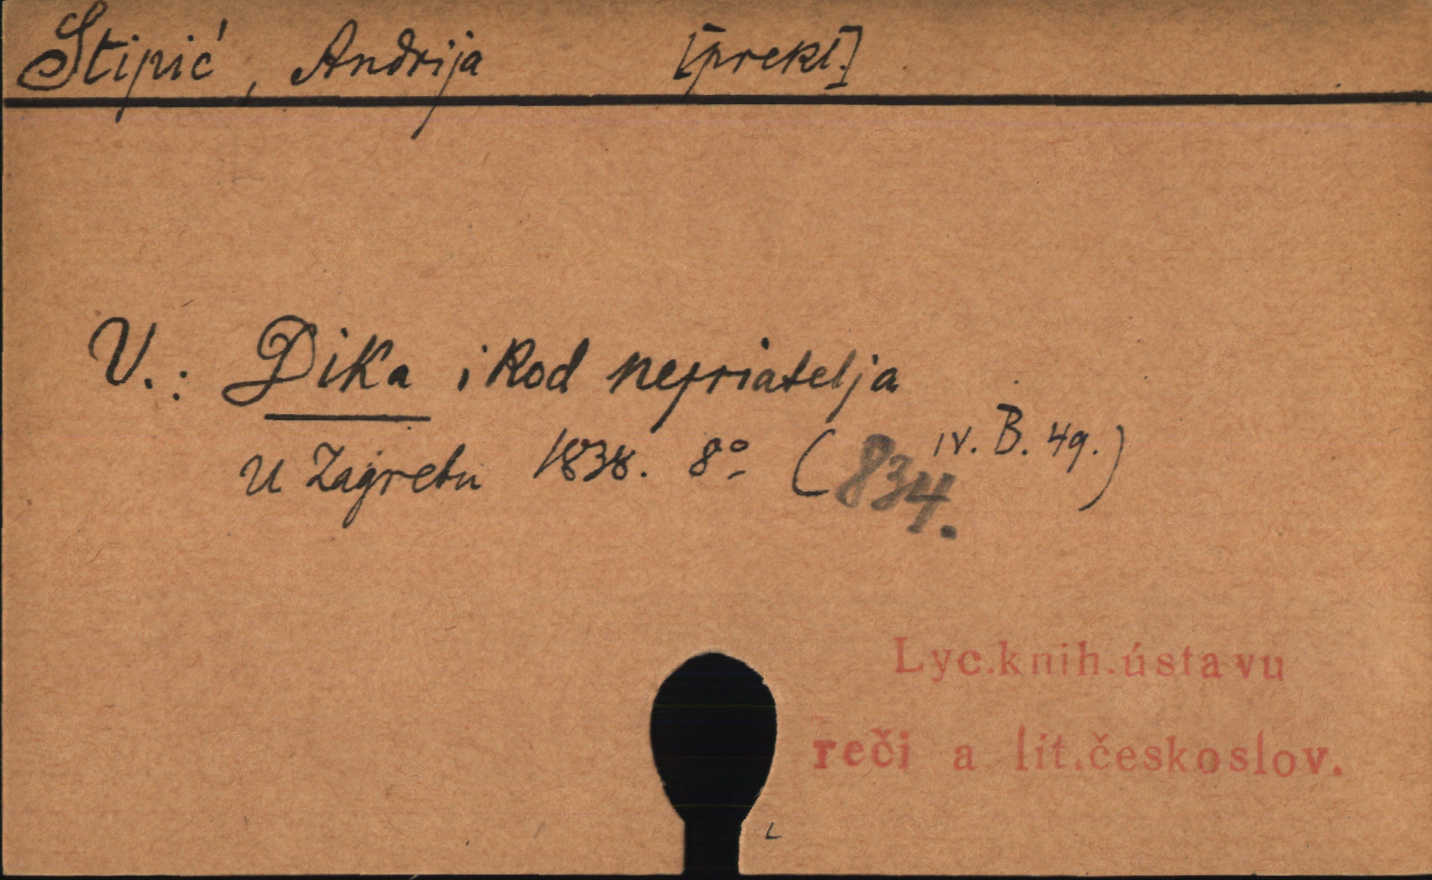 Stipić, Andrija [prekl.]
V.: Dika i kod nepriatelja
U Zagrebu 1838. 8° (IV. B. 49.)
834.
Lyc.knih.ústavu
reči a lit.českoslov.